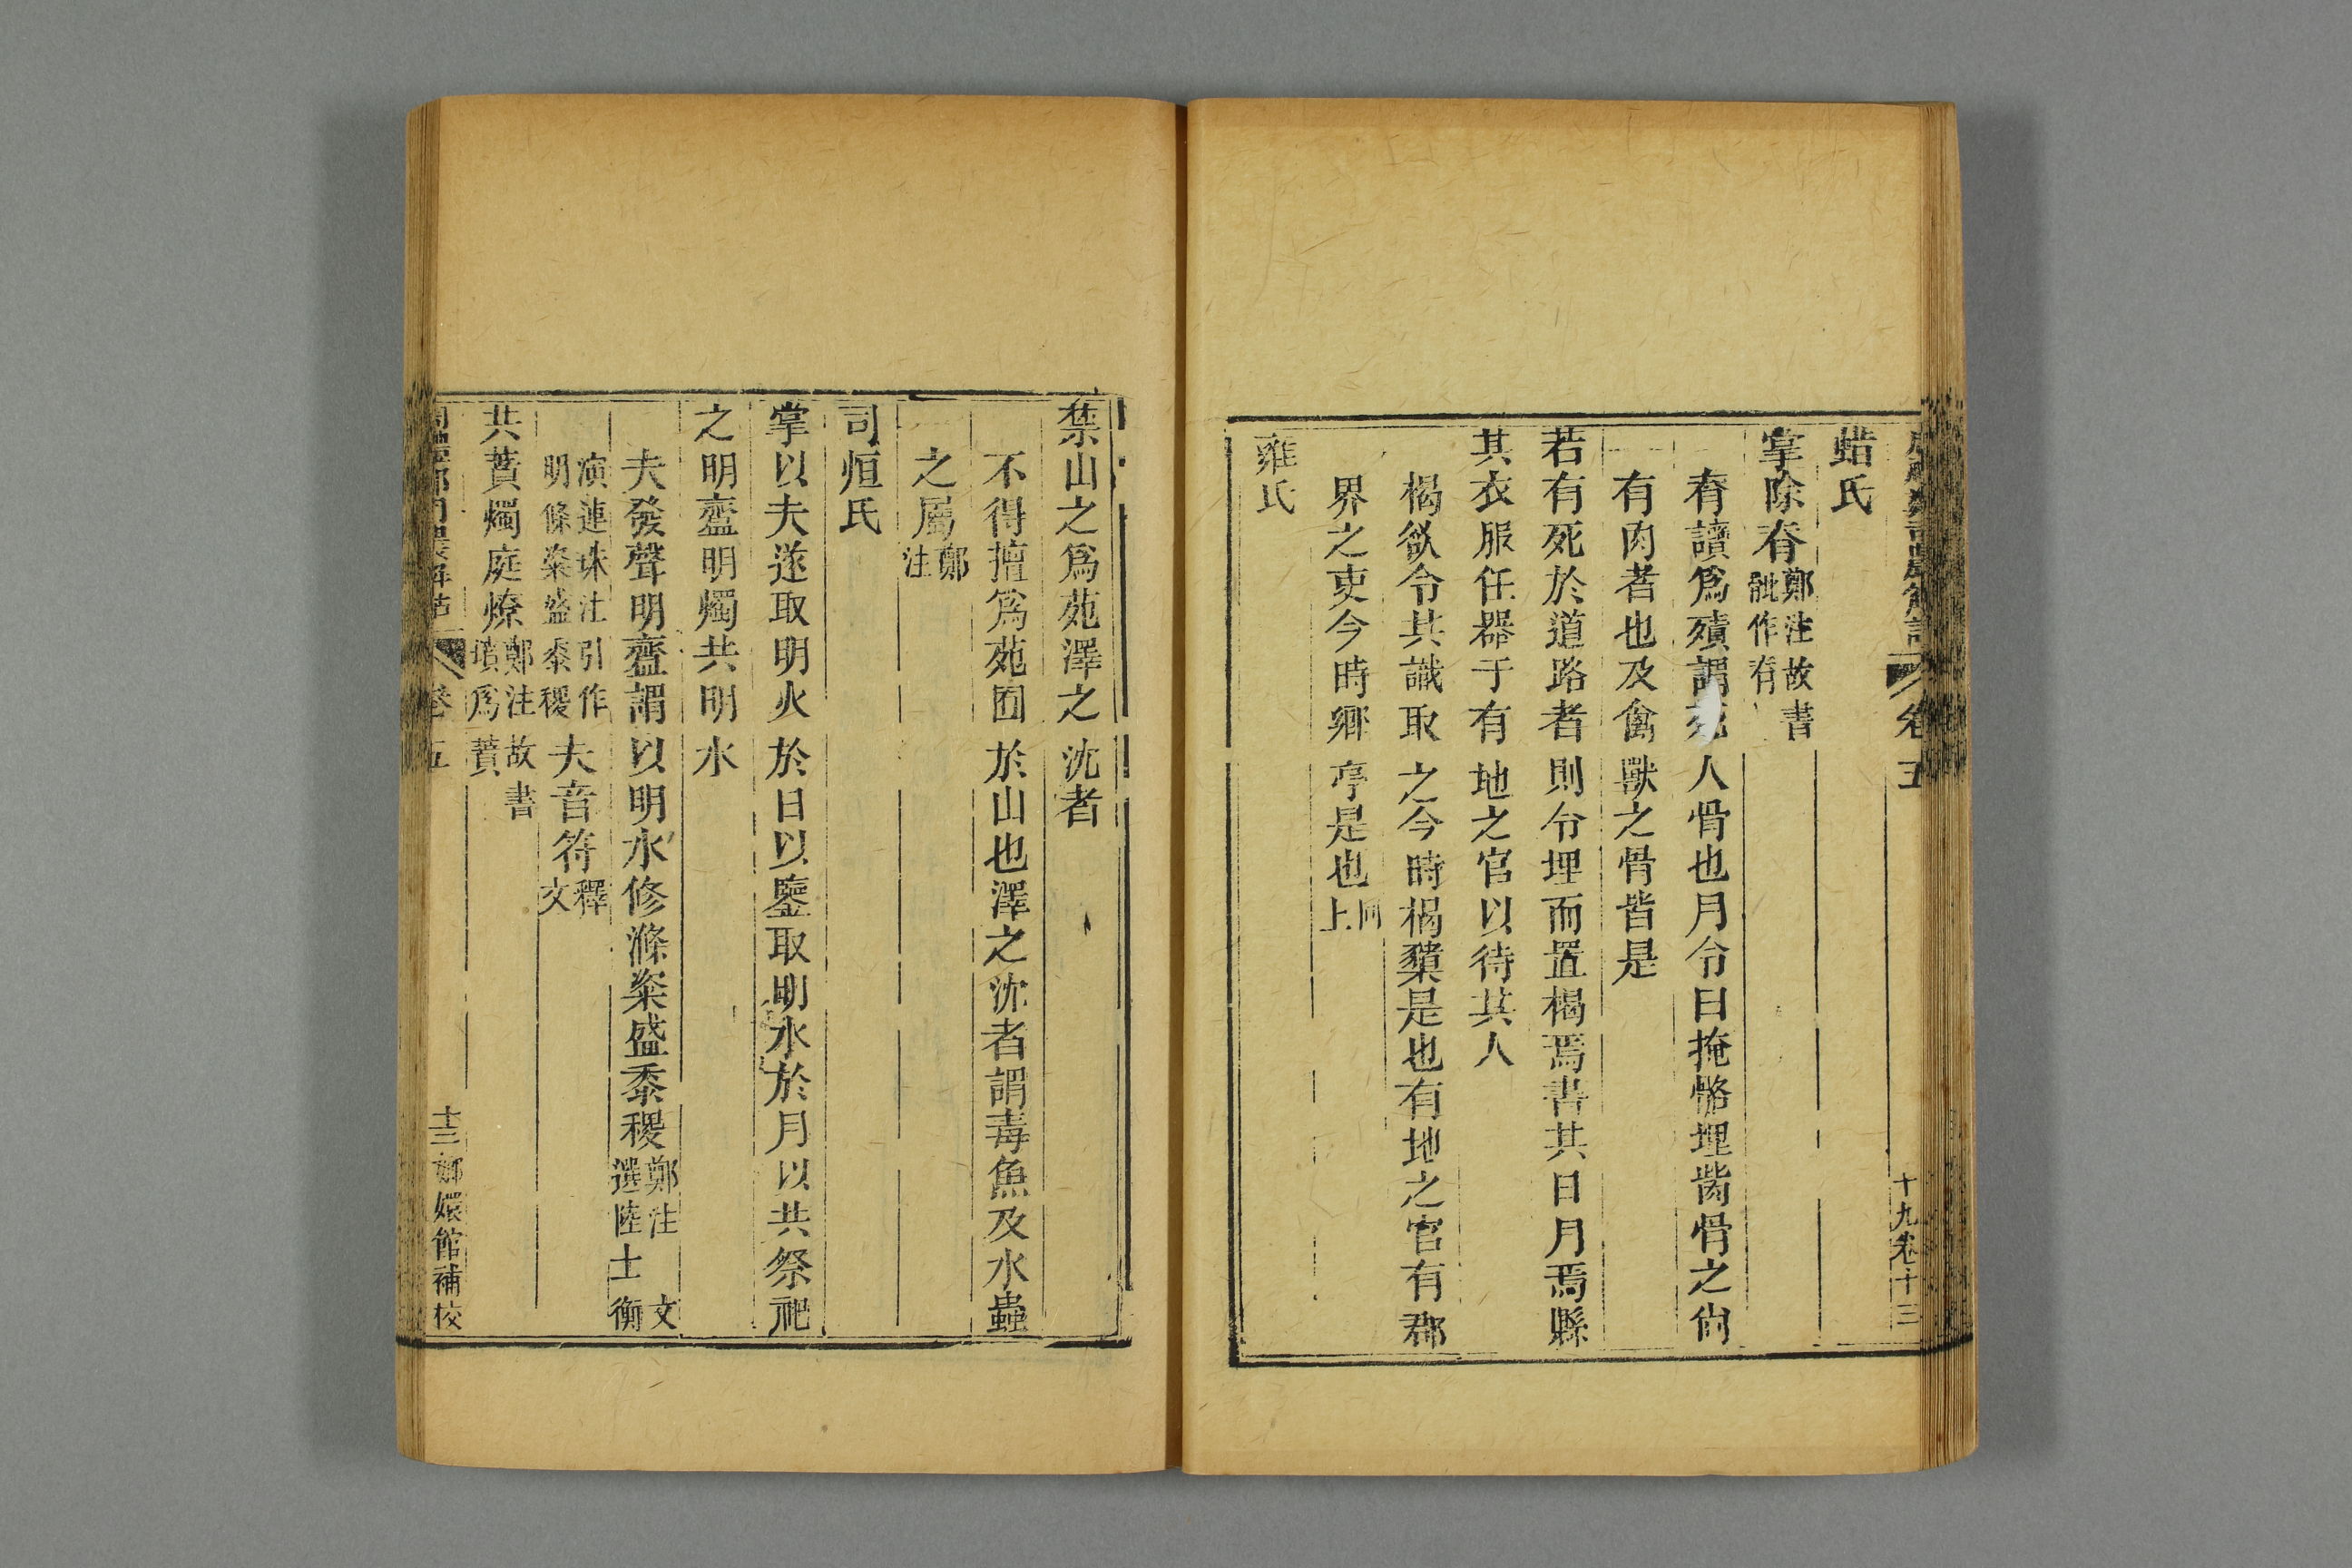 卷五
十九卷十三
蜡氏
掌除脊鄭注故書
骴作脊
脊讀爲殨謂死人骨也月令曰掩骼埋胔骨之尙
有肉者也及禽獸之骨皆是
若有死於道路者則令埋而置楬焉書其日月焉縣
其衣服任器于有地之官以待其人
楬欲令其識取之今時楬櫫是也有地之官有郡
界之吏今時鄉亭是也同
上
雍氏
禁山之爲苑澤之沈者
不得擅爲苑囿於山也澤之沈者謂毒魚及水蟲
之屬鄭
注
司烜氏
掌以夫遂取明火於日以鑒取明水於月以共祭祀
之明齍明燭共明水
夫發聲明齍謂以明水修滌粢盛黍稷鄭注 文
選陸士衡
演連珠注引作
明滌粢盛黍稷夫音符釋
文
共蕡燭庭燎鄭注故書
墳爲蕡
卷五
十三鄉嬛館補校